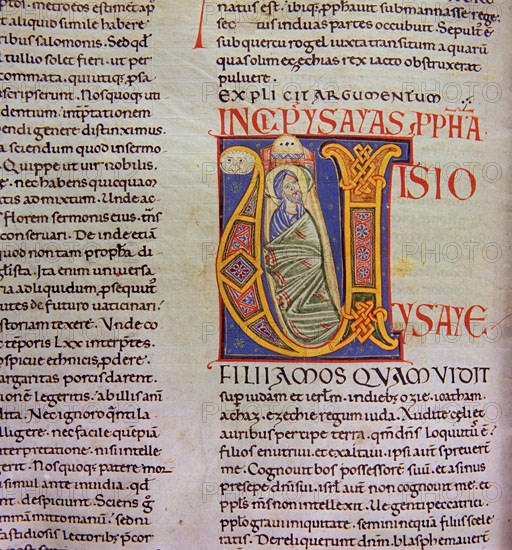 ptol. metroes estimet ap
t aliquid simile habere
ribus salomonis. Sed qd
tullio solet fieri. ut per
commata. qui utiq; psa
scripserunt. Nos quoq; uti
dentium. intptationem
endi genere distinximus.
a sciendum quod in sermo
Quippe ut uir nobilis.
g. nec habens quicquam
atis admixtum. Unde ac
florem sermonis eius. tns
conseruari. De inde etiā
quod non tam propha di
glista. Ita enim uniuersa
ria ad liquidum psequut
utes de futuro uaticinari.
storiam texere. Unde co
e temporis lxx interptes.
ospicue ethnicis pdere.
argaritas porcis darent.
onem legeritis. ab illis ani
dita. Nec ignoro qnti la
lligere. nec facile quēpiā
interpretatione. nisi intelle
gerit. Nos quoq; patere mor
simul ante inuidia. qd
t. despiciunt. Sciens g
manū mittomanū. sed ni
fastidiosi lectoris. pcor
natus est. ibiq; pphauit sub manasse rege.
sec tus in duas partes occubuit. Sepult ē
sub quercu rogel iuxta transitum aquarū
quas olim ezechias rex iacto obstruxerat
puluere.
EXPLICIT ARGUMENTUM
INCIP YSAYAS PPHA
UISIO
YSAYE
FILII AMOS QVAM VIDIT
sup iudam et ierlm. in dieb; ozie. ioatham.
achaz. ezechie regum iuda. Audite celi et
auribus percipe terra. qm dns loquutus ē.
filios enutriui. et exaltaui. ipsi aut spreuert
me. Cognouit bos possessorē suū. et asinus
presepe dni sui. isrl aut non cognouit me. et
ppls ms non intellexit. Ue genti peccatrici.
pplo graui iniquitate. semini nequā. filiis scele
ratis. Dereliquerunt dnm. blasphemauert